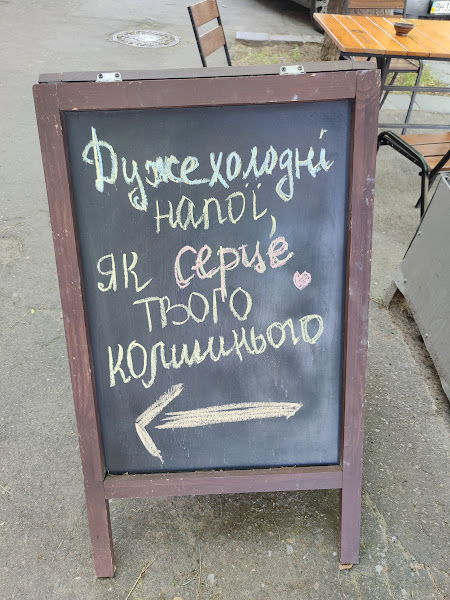 Дуже холодні
напої,
як серце
твого
колишнього